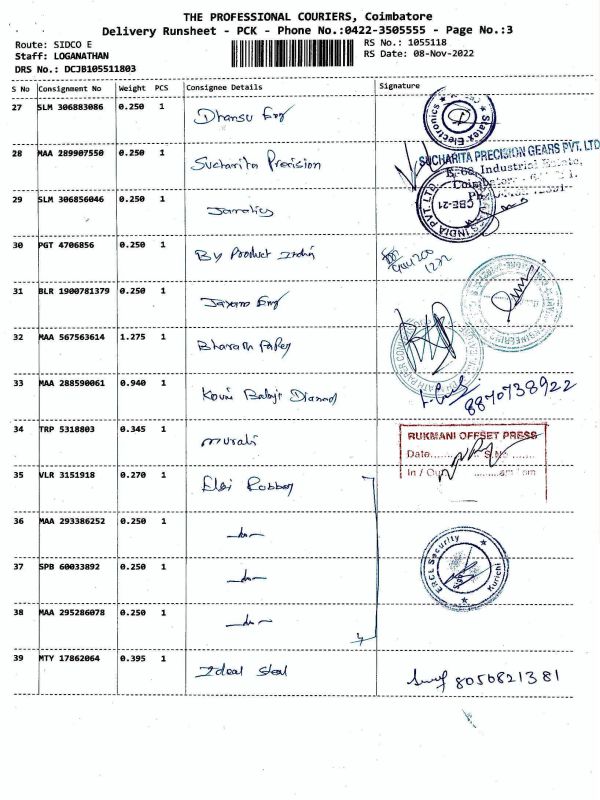 THE PROFESSIONAL COURIERS, Coimbatore
Delivery Runsheet - PCK - Phone No.:0422-3505555 - Page No.:3
Route: SIDCO E
RS No.: 1055118
Staff: LOGANATHAN
RS Date: 08-Nov-2022
DRS No.: DCJB105511803
S No Consignment No Weight PCS Consignee Details Signature
27 SLM 306883086 0.250 1 Dhansu Eng
Statex Electronics
28 MAA 289907550 0.250 1 Sucharita Precision
SUCHARITA PRECISION GEARS PVT. LTD
E-68, Industrial Estate,
29 SLM 306856046 0.250 1
INDIA PVT. LTD
CBE-21
30 PGT 4706856 0.250 1 By Product India
31 BLR 1900781379 0.250 1 Eng
32 MAA 567563614 1.275 1 Bharath Paper
33 MAA 288590061 0.940 1 Kovai Balaji
8870738922
34 TRP 5318803 0.345 1 Murali
RUKMANI OFFSET PRESS
Date.......... S.No .......
In / Out .......... am / pm
35 VLR 3151918 0.270 1 Elgi Rubber
36 MAA 293386252 0.250 1 -do-
37 SPB 60033892 0.250 1 -do-
Security
Kurichi
38 MAA 295286078 0.250 1 -do-
39 MTY 17862064 0.395 1 Ideal Steel
8050821381